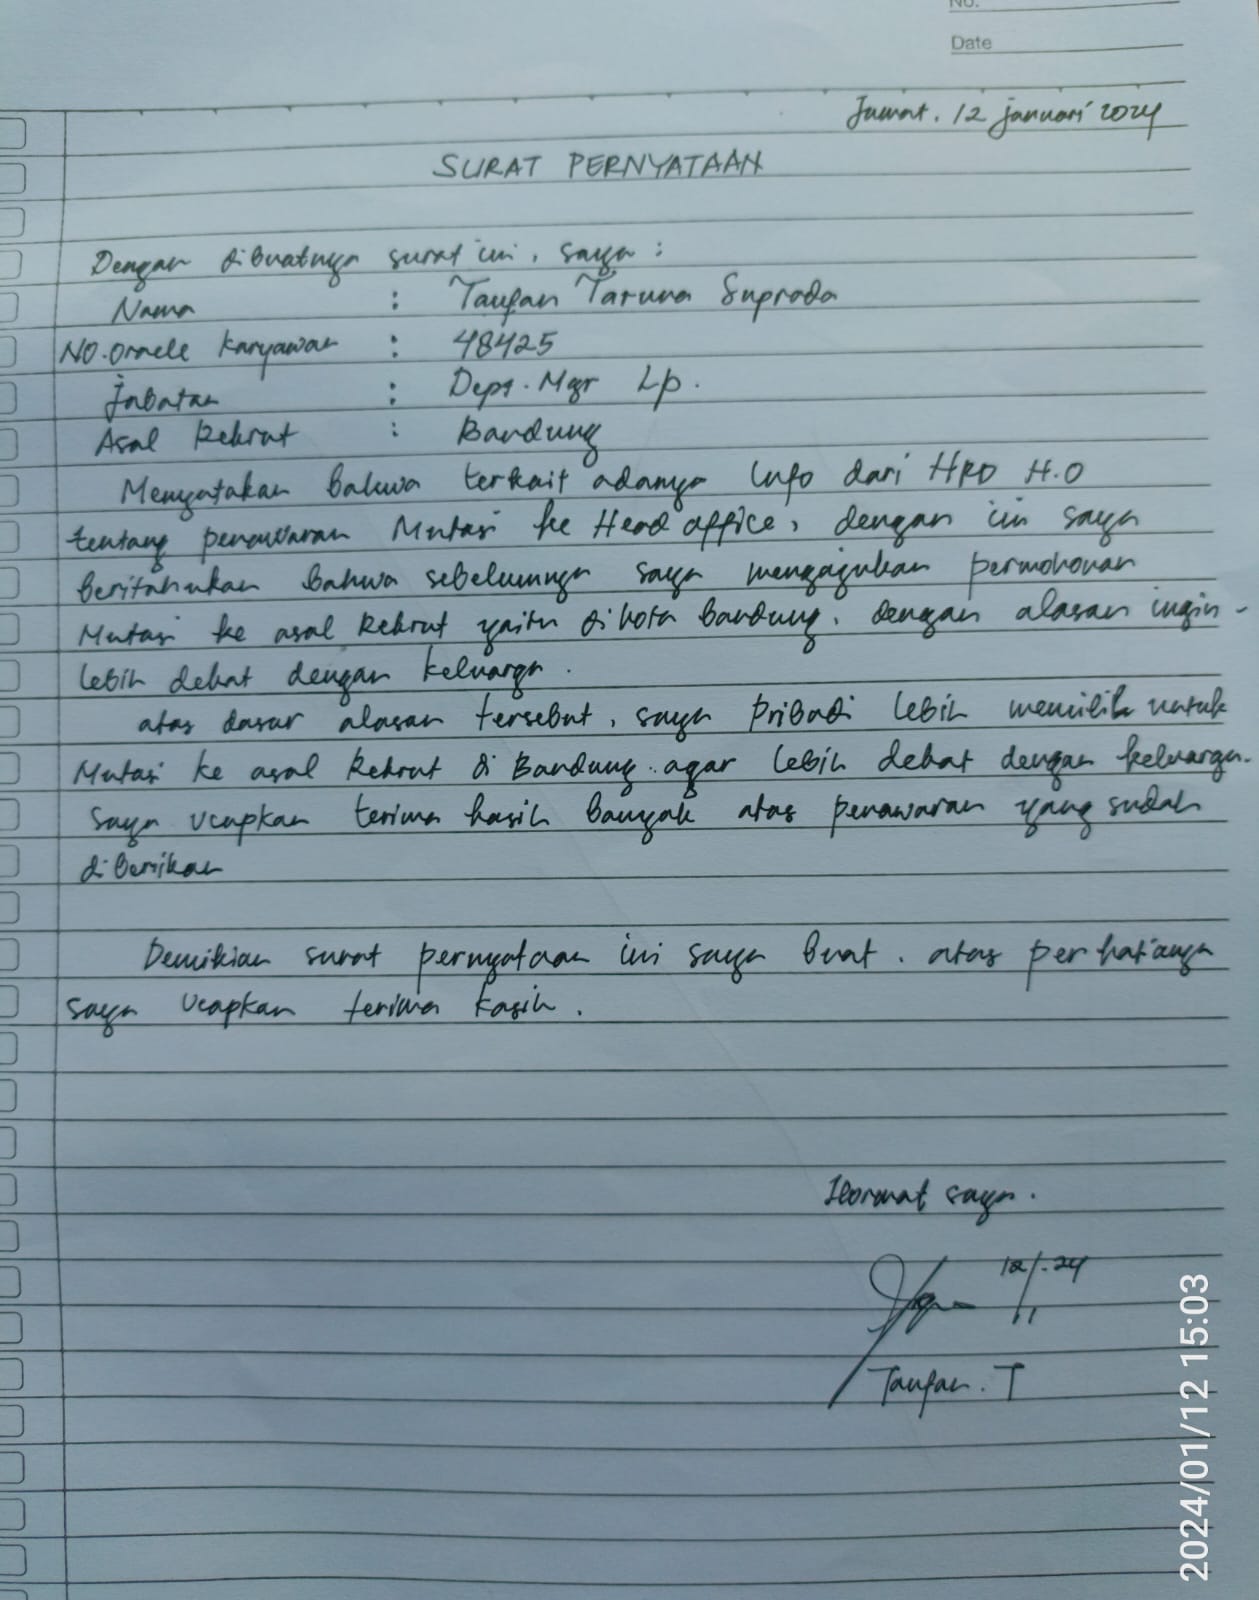 No.
Date
Jumat, 12 januari 2024
SURAT PERNYATAAN
Dengan dibuatnya surat ini, saya :
Nama : Taufan Taruna Suprada
NO. Oracle Karyawan : 48425
Jabatan : Dept. Mgr Lp.
Asal Rekrut : Bandung
Menyatakan bahwa terkait adanya Info dari HRD H.O
tentang penawaran Mutasi ke Head office, dengan ini saya
beritahukan bahwa sebelumnya saya mengajukan permohonan
Mutasi ke asal Rekrut yaitu di kota Bandung, dengan alasan ingin -
lebih dekat dengan keluarga.
atas dasar alasan tersebut, saya pribadi lebih memilih untuk
Mutasi ke asal Rekrut di Bandung agar lebih dekat dengan keluarga.
Saya ucapkan terima kasih banyak atas penawaran yang sudah
diberikan
Demikian surat pernyataan ini saya buat. atas perhatianya
saya ucapkan terima kasih.
Hormat saya.
Taufan. T
2024/01/12 15:03